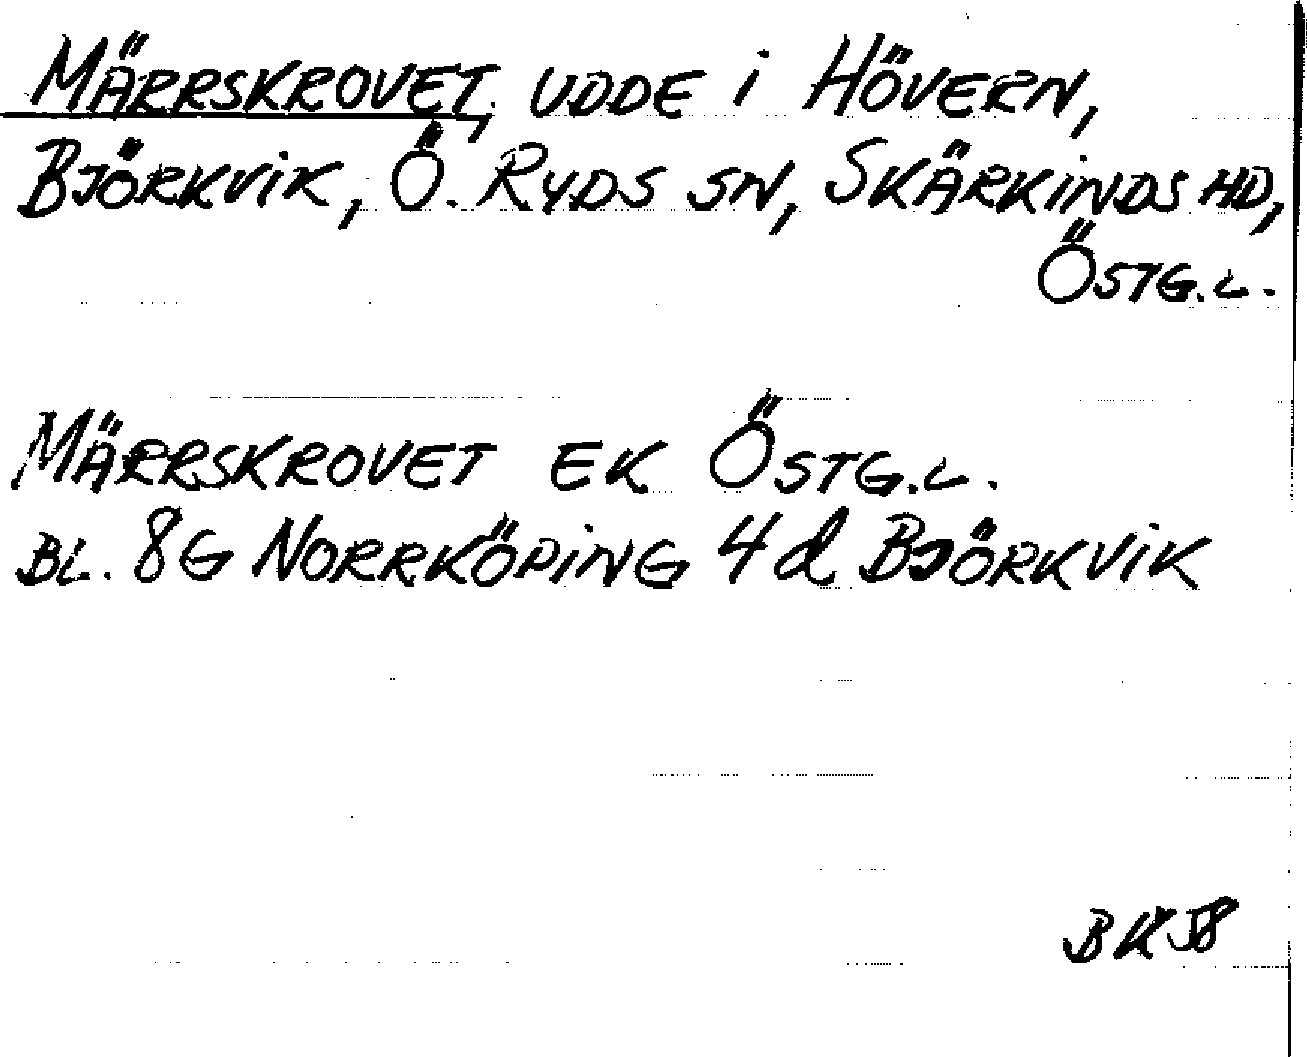 MÄRRSKROVET, UDDE i HÖVERN,
BJÖRKVIK, Ö. RYDS SN, SKÄRKINDS HD,
ÖSTG.L.
MÄRRSKROVET EK ÖSTG.L.
BL. 8G NORRKÖPING 4d BJÖRKVIK
BK 58